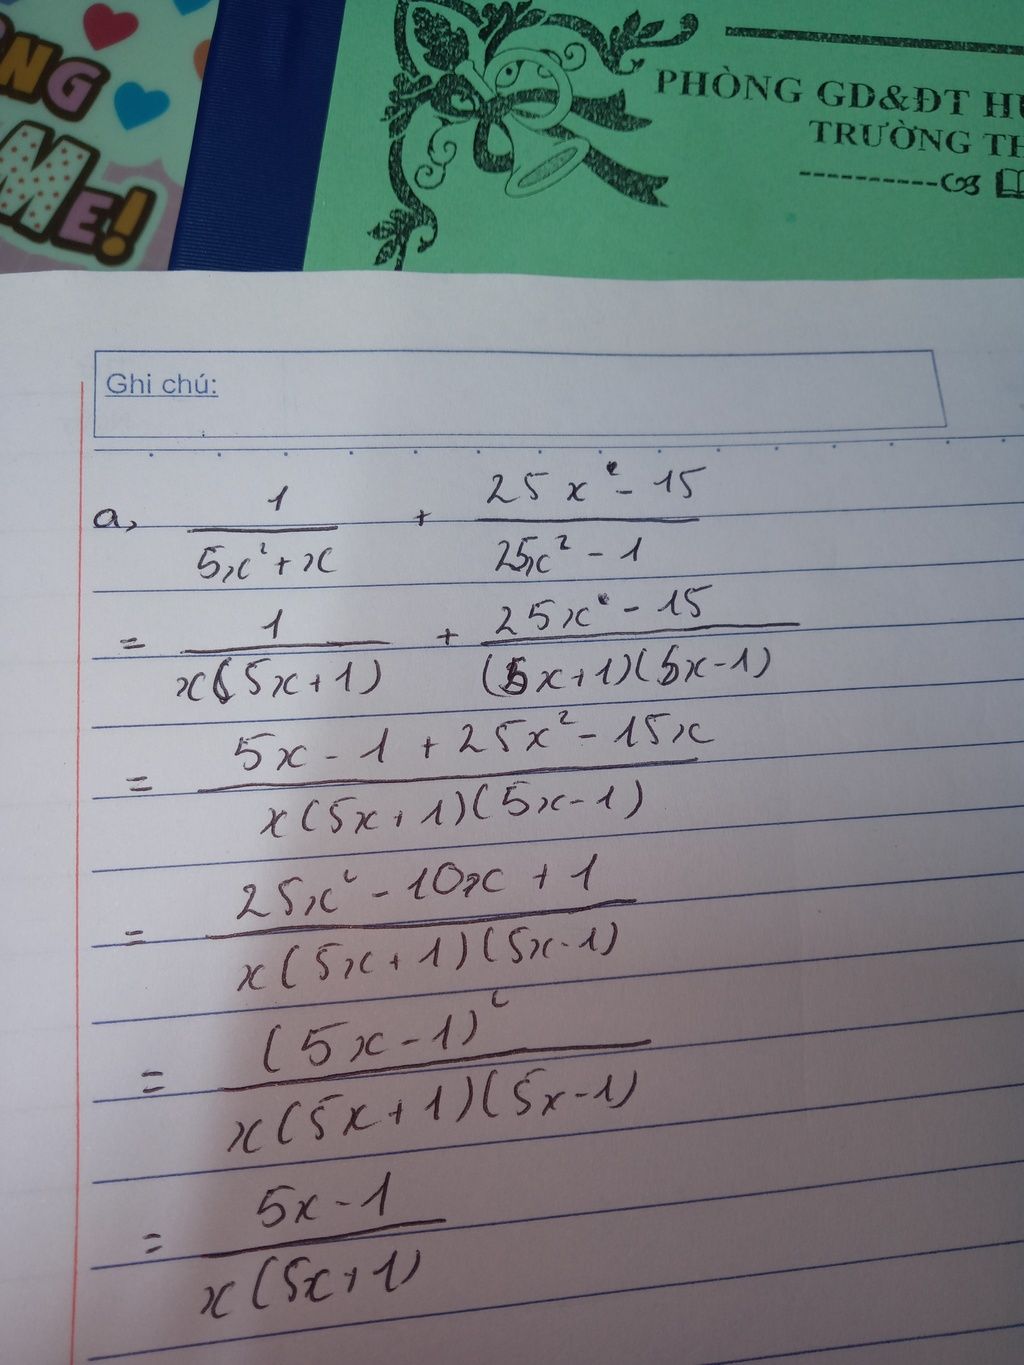 NG
ME!
PHÒNG GD&ĐT
TRƯỜNG
Ghi chú:
a, 1/(5x²+x) + (25x - 15)/(25x² - 1)
= 1/(x(5x+1)) + (25x - 15)/((5x+1)(5x-1))
= (5x - 1 + 25x² - 15x)/(x(5x+1)(5x-1))
= (25x² - 10x + 1)/(x(5x+1)(5x-1))
= (5x-1)²/(x(5x+1)(5x-1))
= (5x-1)/(x(5x+1))